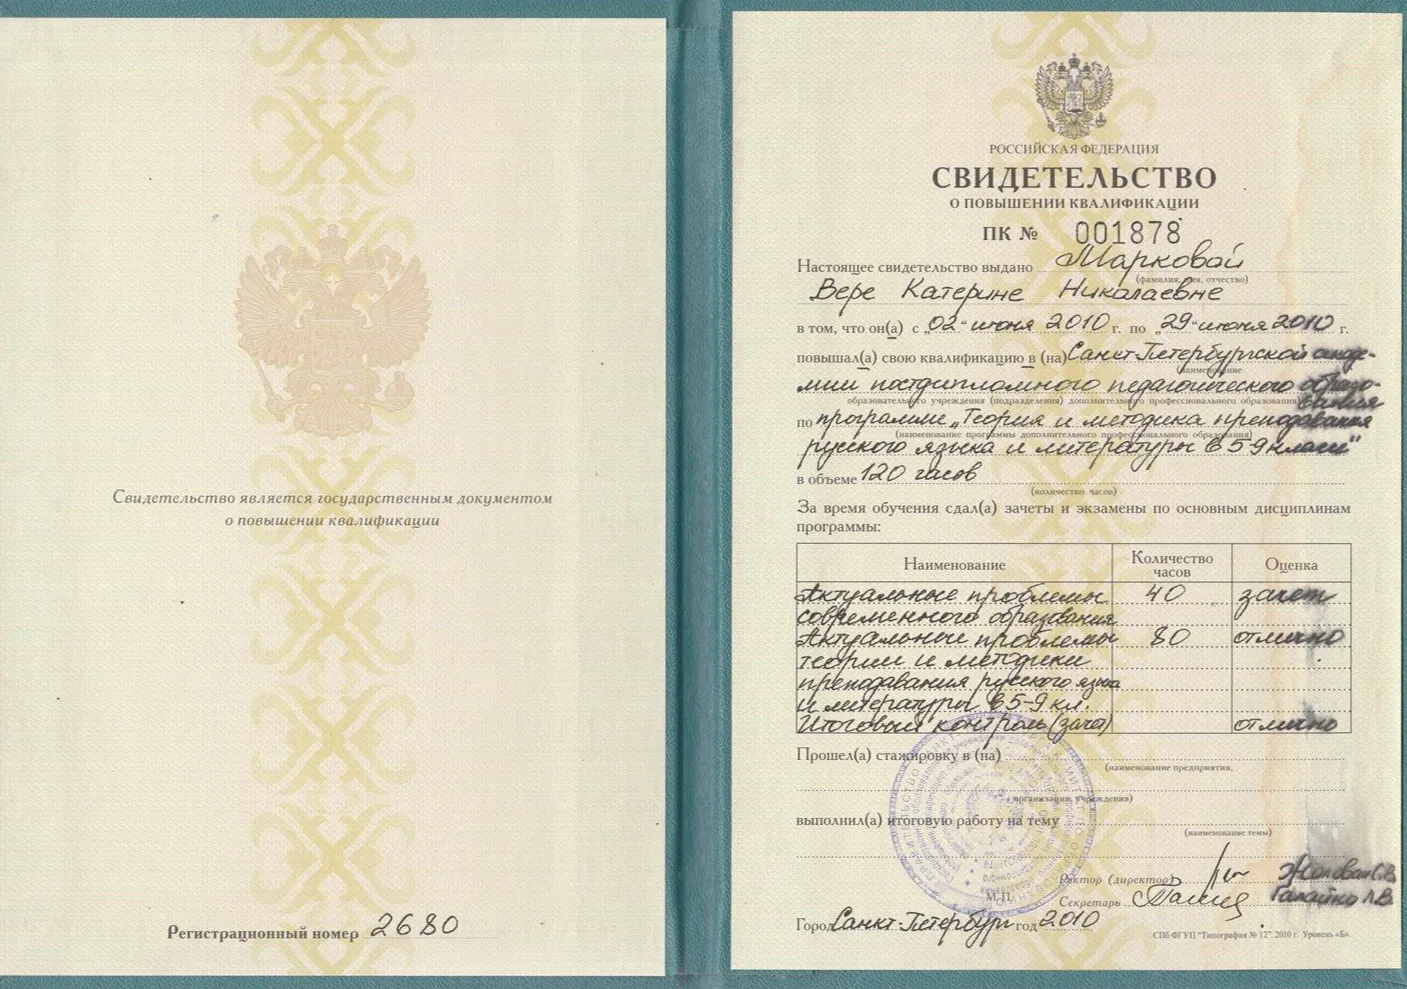 Свидетельство является государственным документом
о повышении квалификации
Регистрационный номер 2680
РОССИЙСКАЯ ФЕДЕРАЦИЯ
СВИДЕТЕЛЬСТВО
О ПОВЫШЕНИИ КВАЛИФИКАЦИИ
ПК № 001878
Настоящее свидетельство выдано Марковой
(фамилия, имя, отчество)
Вере Катерине Николаевне
в том, что он(а) с „02“ июня 2010 г. по „29“ июня 2010 г.
повышал(а) свою квалификацию в (на) Санкт-Петербургской акаде-
(наименование
мии постдипломного педагогического образо-
вания
образовательного учреждения (подразделения) дополнительного профессионального образования)
по программе „Теория и методика преподавания
(наименование программы дополнительного профессионального образования)
русского языка и литературы в 5-9 классе"
в объеме 120 часов
(количество часов)
За время обучения сдал(а) зачеты и экзамены по основным дисциплинам
программы:
Наименование Количество часов Оценка
Актуальные проблемы 40 зачет
современного образования
Актуальные проблемы 80 отлично
теории и методики
преподавания русского языка
и литературы в 5-9 кл.
Итоговый контроль (зачет) отлично
Прошел(а) стажировку в (на)
(наименование предприятия,
организации, учреждения)
выполнил(а) итоговую работу на тему
(наименование темы)
Ректор (директор)
Секретарь Галайко Л.В.
М.П.
Город Санкт-Петербург год 2010
СПБ ФГУП "Типография № 12". 2010 г. Уровень «Б».